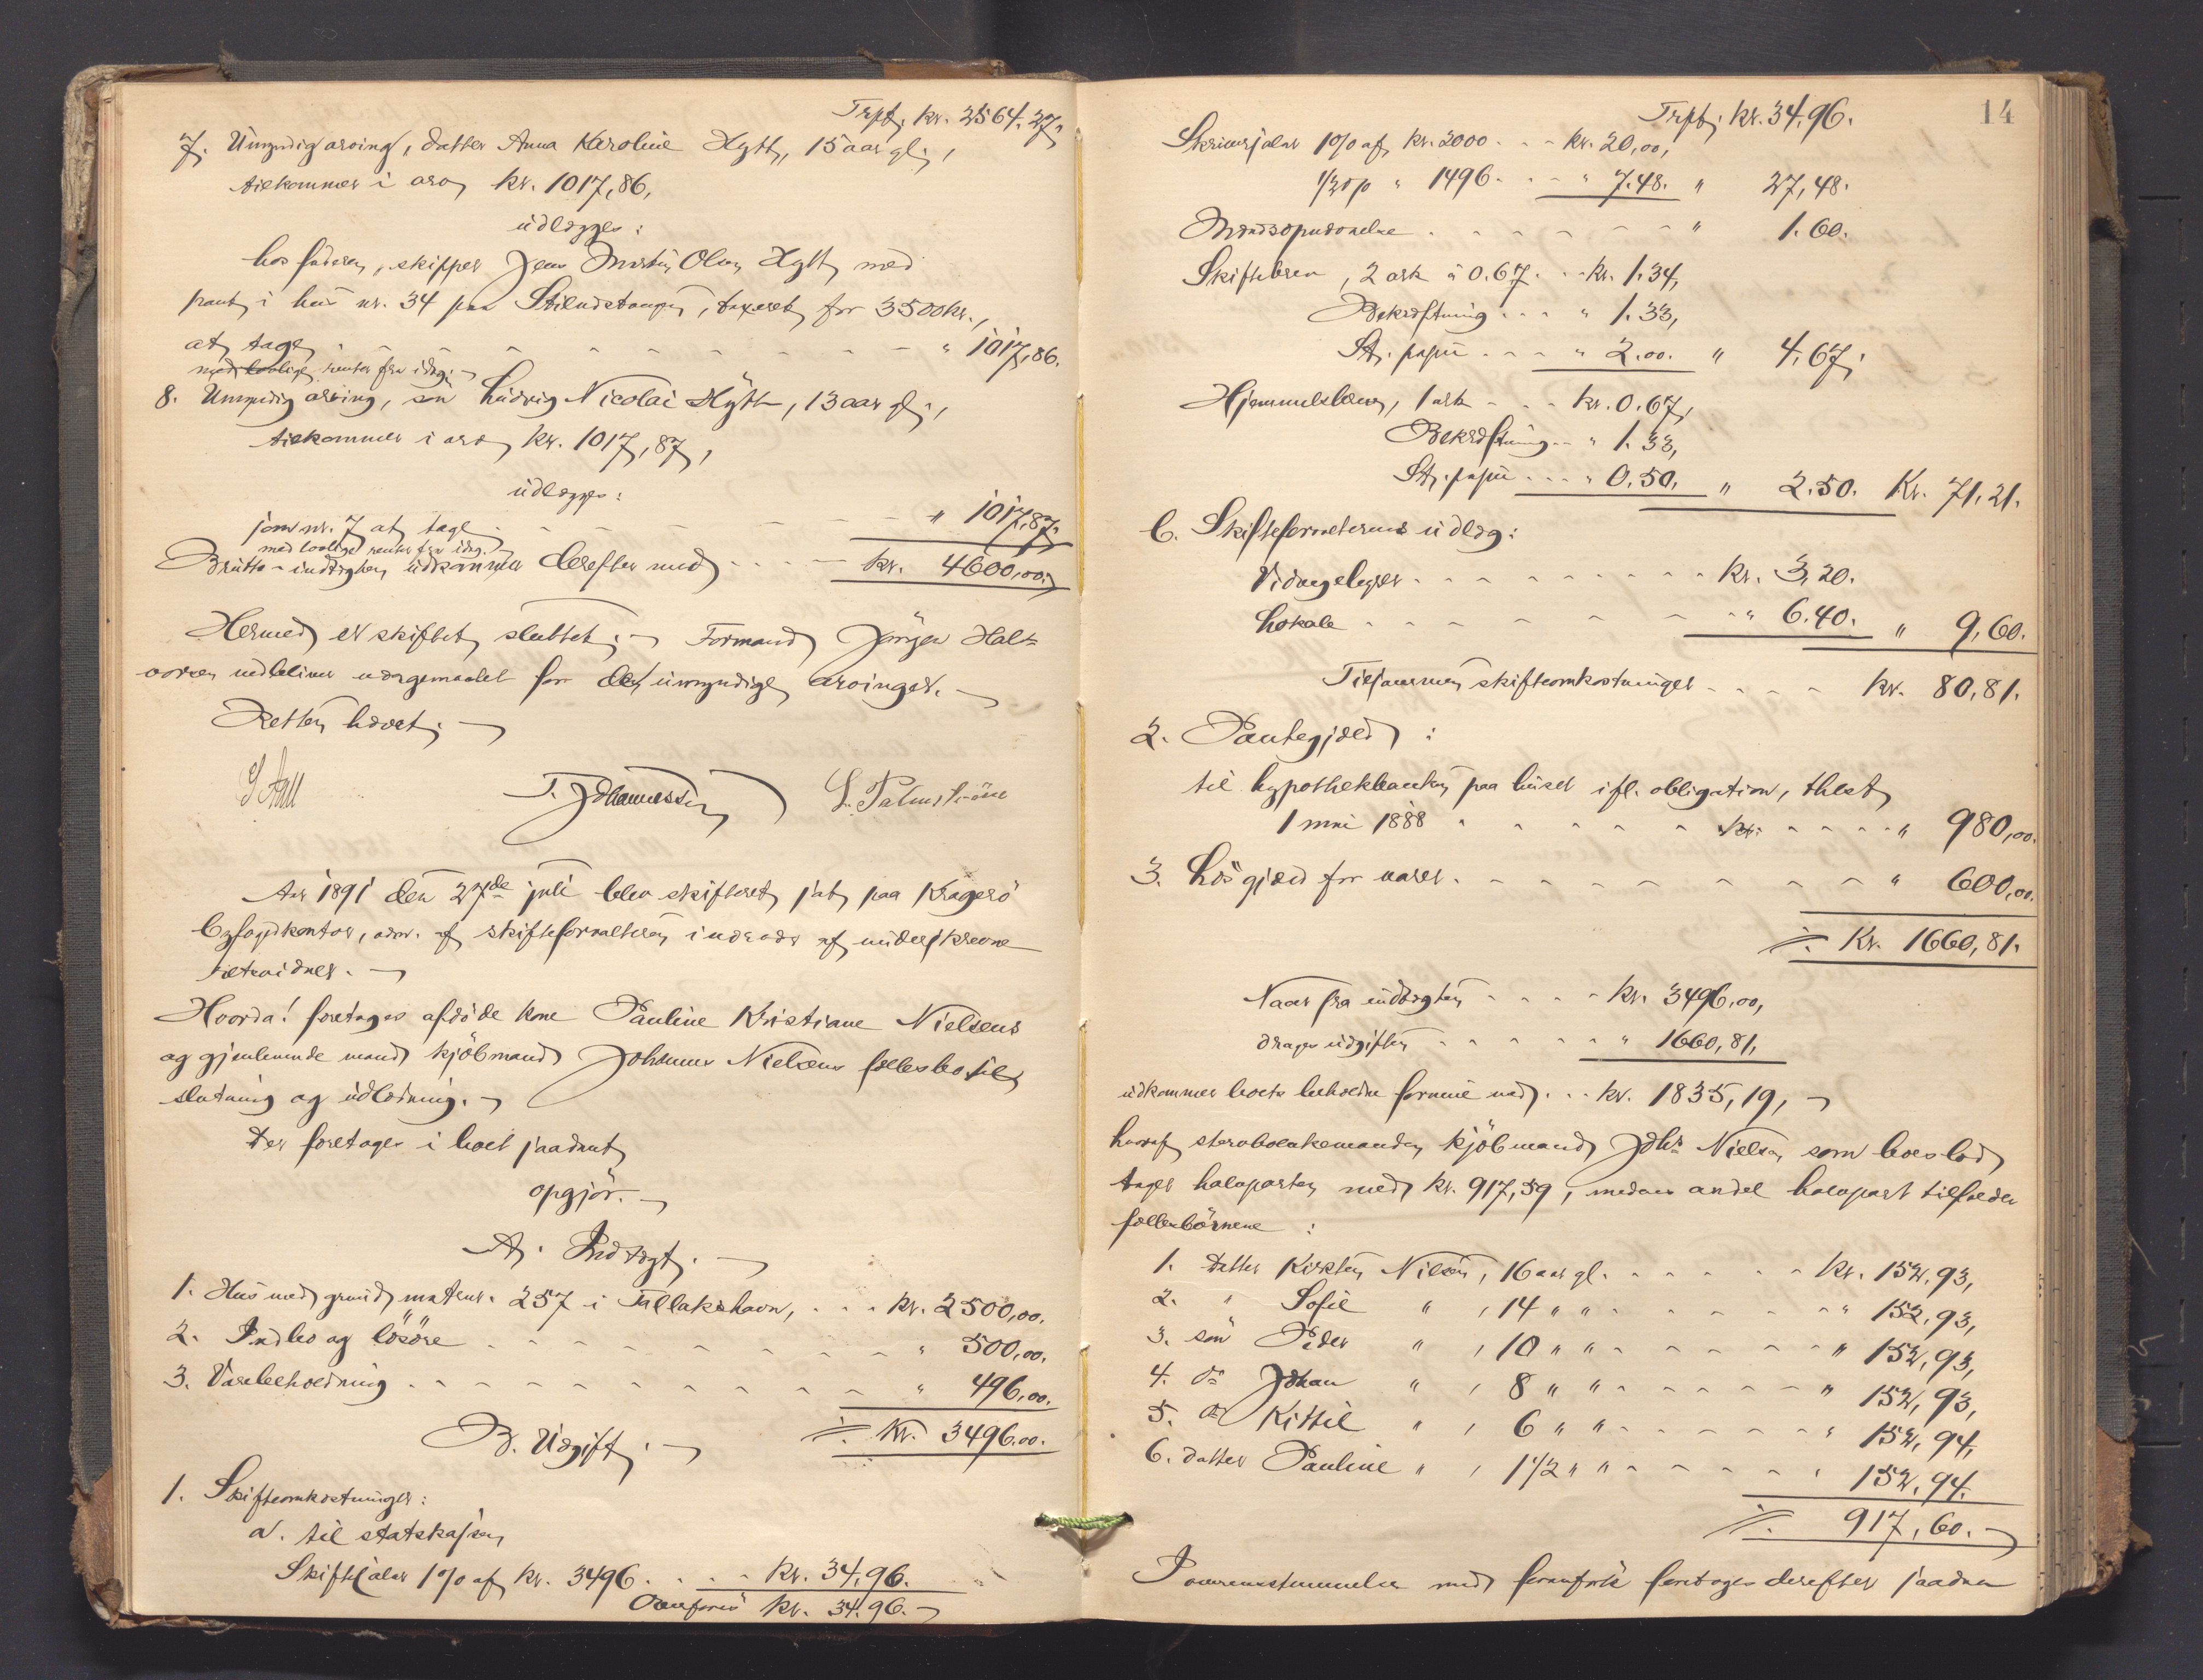 Trpt. kr. 2564.27.
7. Umyndig arving, datter Anna Karoline Hytt, 15 aar gl.,
tilkommer i arv kr. 1017,86,
udlægges:
hos faderen, skipper Jens Martin Olsen Hytt, med
pant i hus nr. 34 paa Stilnestangen, taxeret for 3500 kr.,
at tage " 1017,86.
med lovlige renter fra idag.
8. Umyndig arving, søn Ludvig Nicolai Hytt, 13 aar gl.,
tilkommer i arv kr. 1017,87,
udlægges:
som nr. 7 at tage " 1017,87.
med lovlige renter fra idag.
Brutto-indtægten udkommer derefter med kr. 4600,00.
Hermed er skiftet sluttet. Formand Jørgen Hal-
vorsen vedbliver værgemaalet for de umyndige arvinger.
Retten hævet.
S Aall T. Johannessen L. Palmstrøm
Aar 1891 den 27de juli blev skifteret sat paa Kragerø
byfogdkontor, adm. af skifteforvalteren i nærvær af underskrevne
retsvidner.
Hvorda! foretoges afdøde kone Pauline Kristiane Nielsens
og gjenlevende mand kjøbmand Johannes Nielsens fællesbo til
slutning og udlodning.
Der foretages i boet saadant
opgjør.
A. Indtægt.
1. Hus med grund, matrnr. 257 i Tallakshavn, kr. 2500,00.
2. Indbo og løsøre " 500,00.
3. Varebeholdning " 496,00.
Kr. 3496.00.
B. Udgift.
1. Skifteomkostninger:
a. til statskassen
Skiftesalær 1 % af kr. 3496 kr. 34,96.
Overføres kr. 34.96.
14
Trpt. kr. 34.96.
Skriversalær 1 % af kr. 2000 kr. 20,00,
1/2 % " 1496 " 7.48. " 27,48.
Indtægtsopnævnelse " 1.60.
Skiftebrev, 2 ark à 0.67 kr. 1.34,
Bekræftning " 1.33,
St. papir " 2.00. " 4,67.
Hjemmelsbrev, 1 ark kr. 0.67,
Bekræftning " 1.33,
St. papir " 0.50. " 2.50. Kr. 71.21.
b. Skifteforvalterens udlæg:
Vidnegebyrer kr. 3,20.
Lokale " 6.40. " 9,60.
Tilsammen skifteomkostninger kr. 80,81.
2. Pantegjæld:
til hypothekbanken paa huset ifl. obligation, thlest
1 mai 1888 " 980,00.
3. Løsgjæld for varer " 600,00.
Kr. 1660,81.
Naar fra indtægten kr. 3496,00,
drages udgiften " 1660,81,
udkommer boets beholdne formue med kr. 1835,19,
hvoraf sterbboenkemanden kjøbmand Johs Nielsen som boeslod
tager halvparten med kr. 917,59, medens anden halvpart tilfalder
fællesbørnene:
1. datter Kirsten Nielsen, 16 aar gl. kr. 152,93,
2. " Sofie " , 14 " " " 152,93,
3. søn Peder " , 10 " " " 152,93,
4. do Johan " , 8 " " " 152,93,
5. do Kittil " , 6 " " " 152,94,
6. datter Pauline " , 1 1/2 " " " 152,94.
917,60.
I overensstemmelse med foranførte foretoges derefter saadan